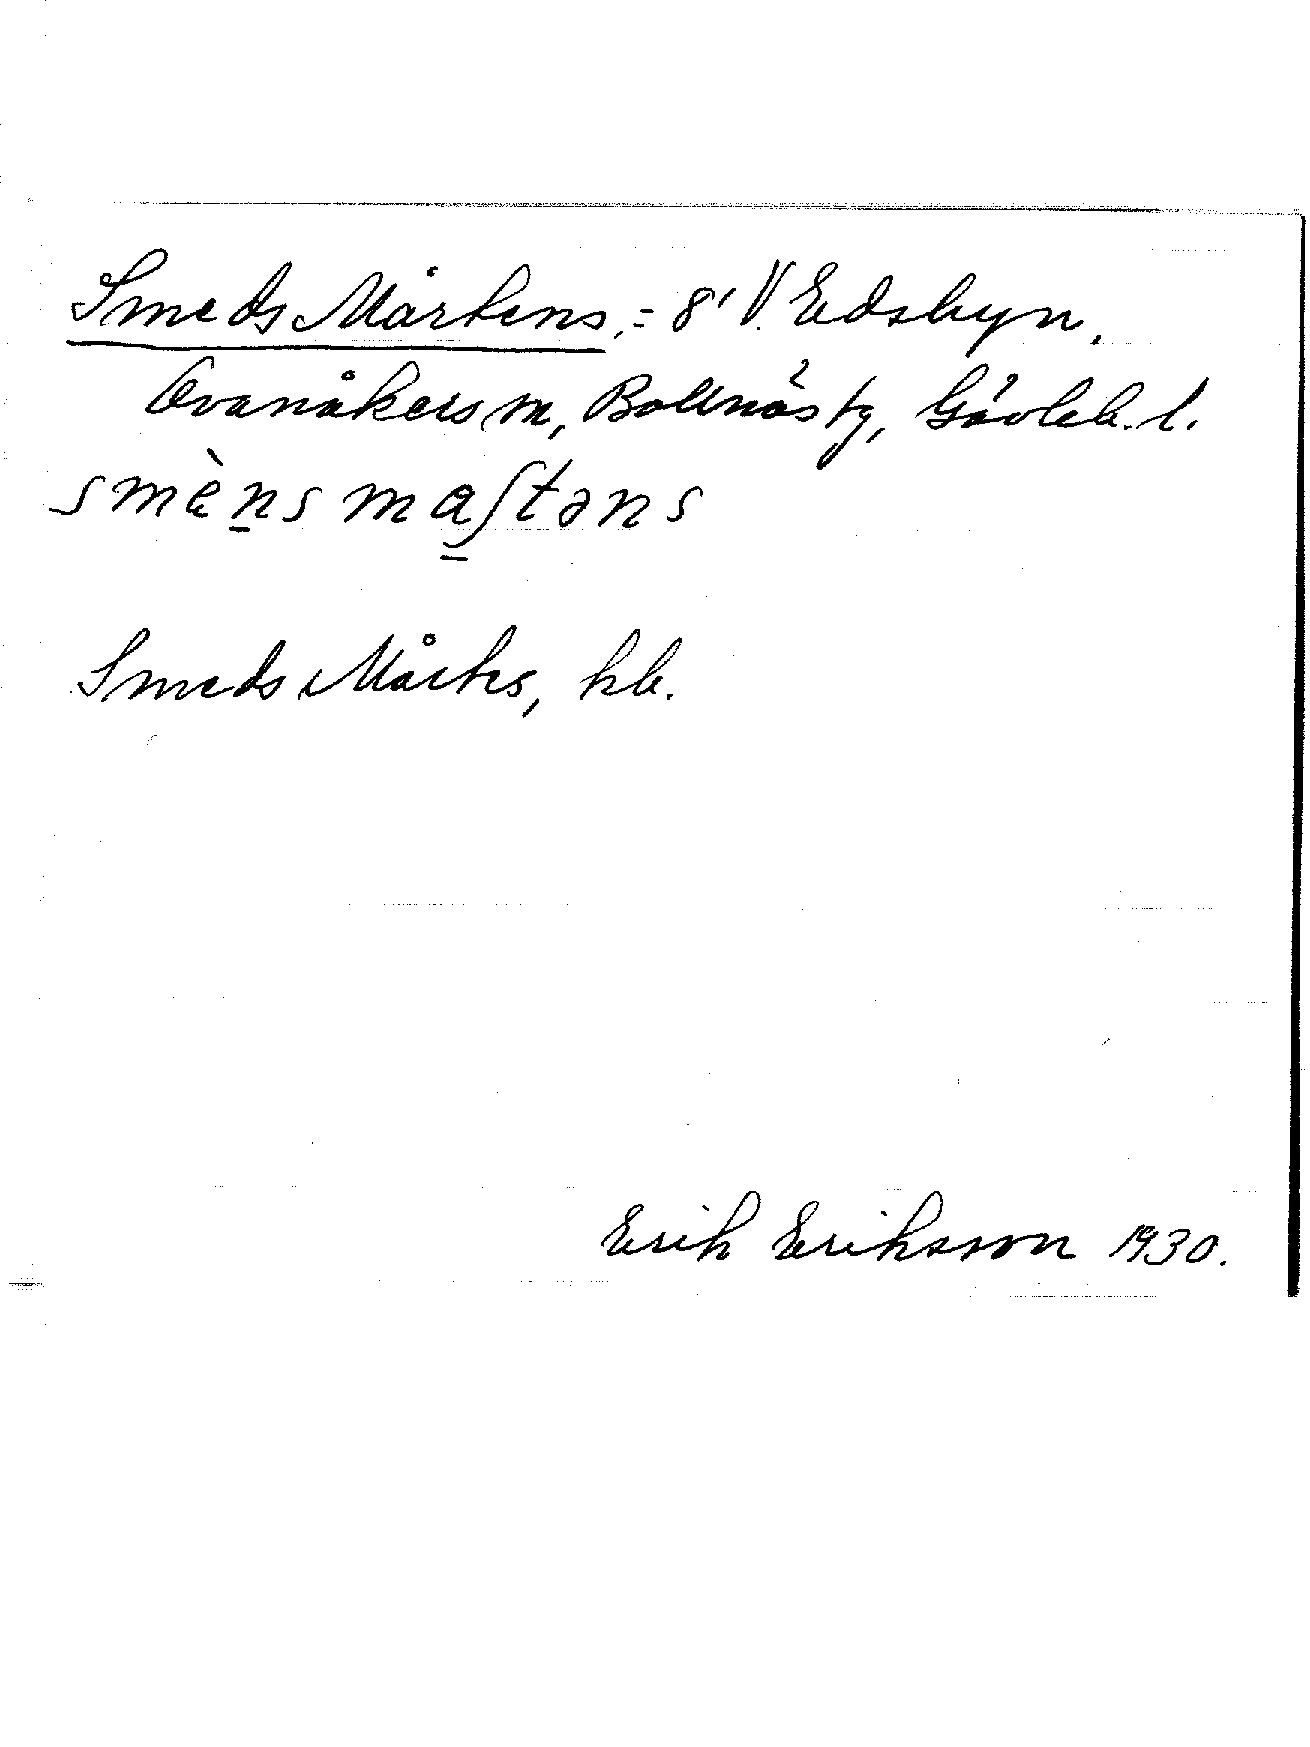 Smeds Mårtens, = 8¹ V. Edsbyn.
Ovanåkers sn, Bollnäs tg, Gävleb. l.
smèn̲s ma̲ʃtəns
Smeds Mårtes, hb.
Erik Eriksson 1930.